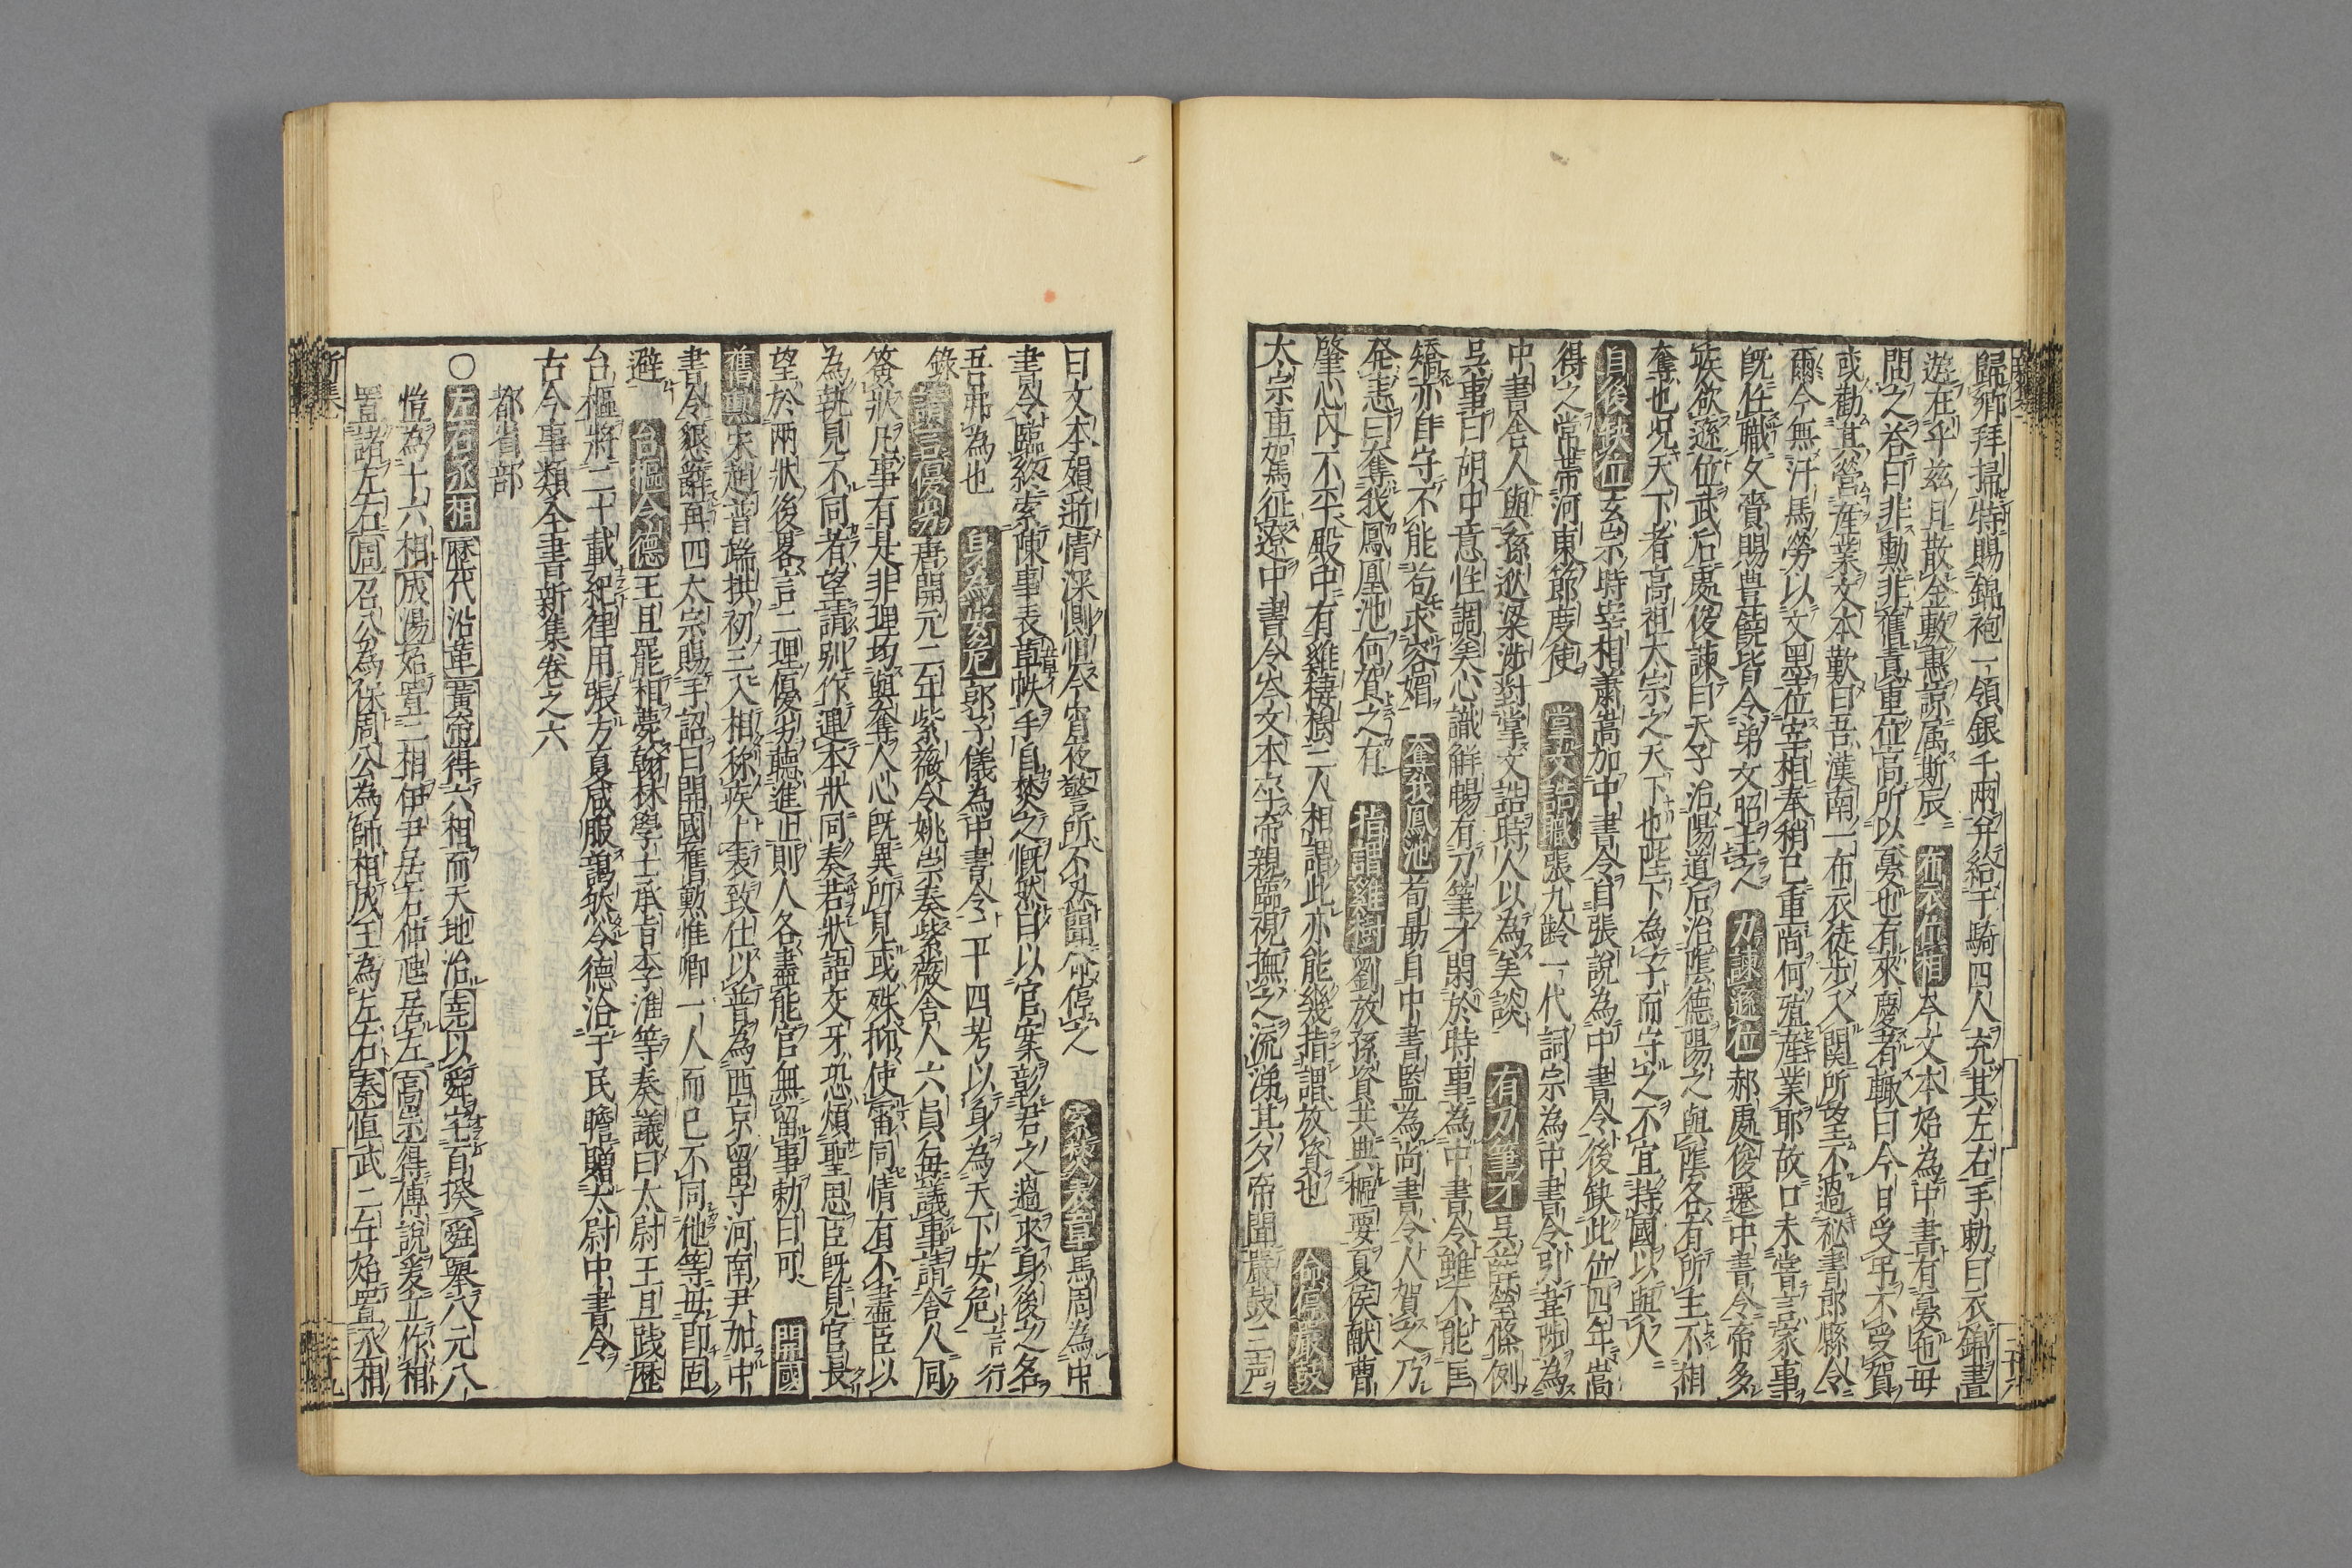 歸鄉拜掃特賜錦袍一領銀千兩并給千騎四人充其左右手勅曰衣錦晝
遊在乎茲日散金敷惠諒属斯辰 布衣位相 岑文本始為中書有憂色母
問之荅曰非勳非舊責重位高所以憂也有來慶者輙曰今日受弔不受賀
或勸其營産業文本歎曰吾漢南一布衣徒步入関所望不過秘書郎縣令
爾今無汗馬勞以文墨位宰相奉稍已重尚何殖産業耶故口未嘗言家事
既任職久賚賜豊饒皆令弟文昭主之 力諫遜位 郝處俊遷中書令帝多
疾欲遜位武后處俊諫曰天子治陽道后治隂德陽之與隂各有所主不相
奪也况天下者高祖太宗之天下也陛下為子而守之不宜持國以與人
自後缺位 玄宗時宰相蕭嵩加中書令自張說為中書令後缺此位四年嵩
得之常帯河東節度使 掌文誥職 張九齡一代詞宗為中書令引韋陟為
中書舍人與孫逖梁渉對掌文誥時人以為美談 有刀筆才 吳陟瑩條例
吳事曰胡中意性調美心識觧暢有刀筆才閑於時事為中書令雖不能匡
矯亦自守不能苟求容媚 奪我鳳池 荀勗自中書監為尚書令人賀之乃
発恚曰奪我鳳凰池何賀之有 指謂雞樹 劉放孫資共典樞要夏侯献曹
肇心内不平殿中有雞棲樹二人相謂此亦能幾指謂放資也 命停嚴鼓
太宗車加馬征遼中書令岑文本卒帝親臨視撫之流涕其夕帝聞嚴鼓三声
曰文本殞逝情深惻怛今宵夜警所不忍聞命停之 索焚表章 馬周為中
書令臨終索陳事表草帙手自焚之慨然曰以官案彰君之過求身後之名
吾弗為也 身為安危 郭子儀為中書令二十四考以身為天下安危言行
錄 請言優劣 唐開元二年紫薇令姚崇奏紫薇舍人六員每議事請舍人同
簽狀凡事有是非理均與奪人心既異所見或殊抑使雷同情有不盡臣以
為執見不同者望請别作連本狀同奏若狀語交牙恐煩聖思臣既見官長
望於兩狀後畧言二理優劣聽進止則人各盡能官無留事勅曰可 開國
舊勳 宋趙普端拱初三入相称疾上表致仕以普為西京留守河南尹加中
書令懇辭再四太宗賜手詔曰開國舊勳惟卿一人而已不同他等毋即固
避 台樞令德 王旦罷相薨翰林學士承旨李淮等奏議曰太尉王旦踐歴
台樞將二十載紀律用張方夏咸服藹然令德洽于民瞻贈太尉中書令
古今事類全書新集卷之六
都省部
○左右丞相 歴代沿革 黃帝得六相而天地治 堯以舜宅百揆 舜舉八元八
愷為十六相 成湯始置二相伊尹居右仲虺居左 高宗得傅說爰立作相
置諸左右 周召公為保周公為師相成王為左右 秦恒武二年始置丞相
新集